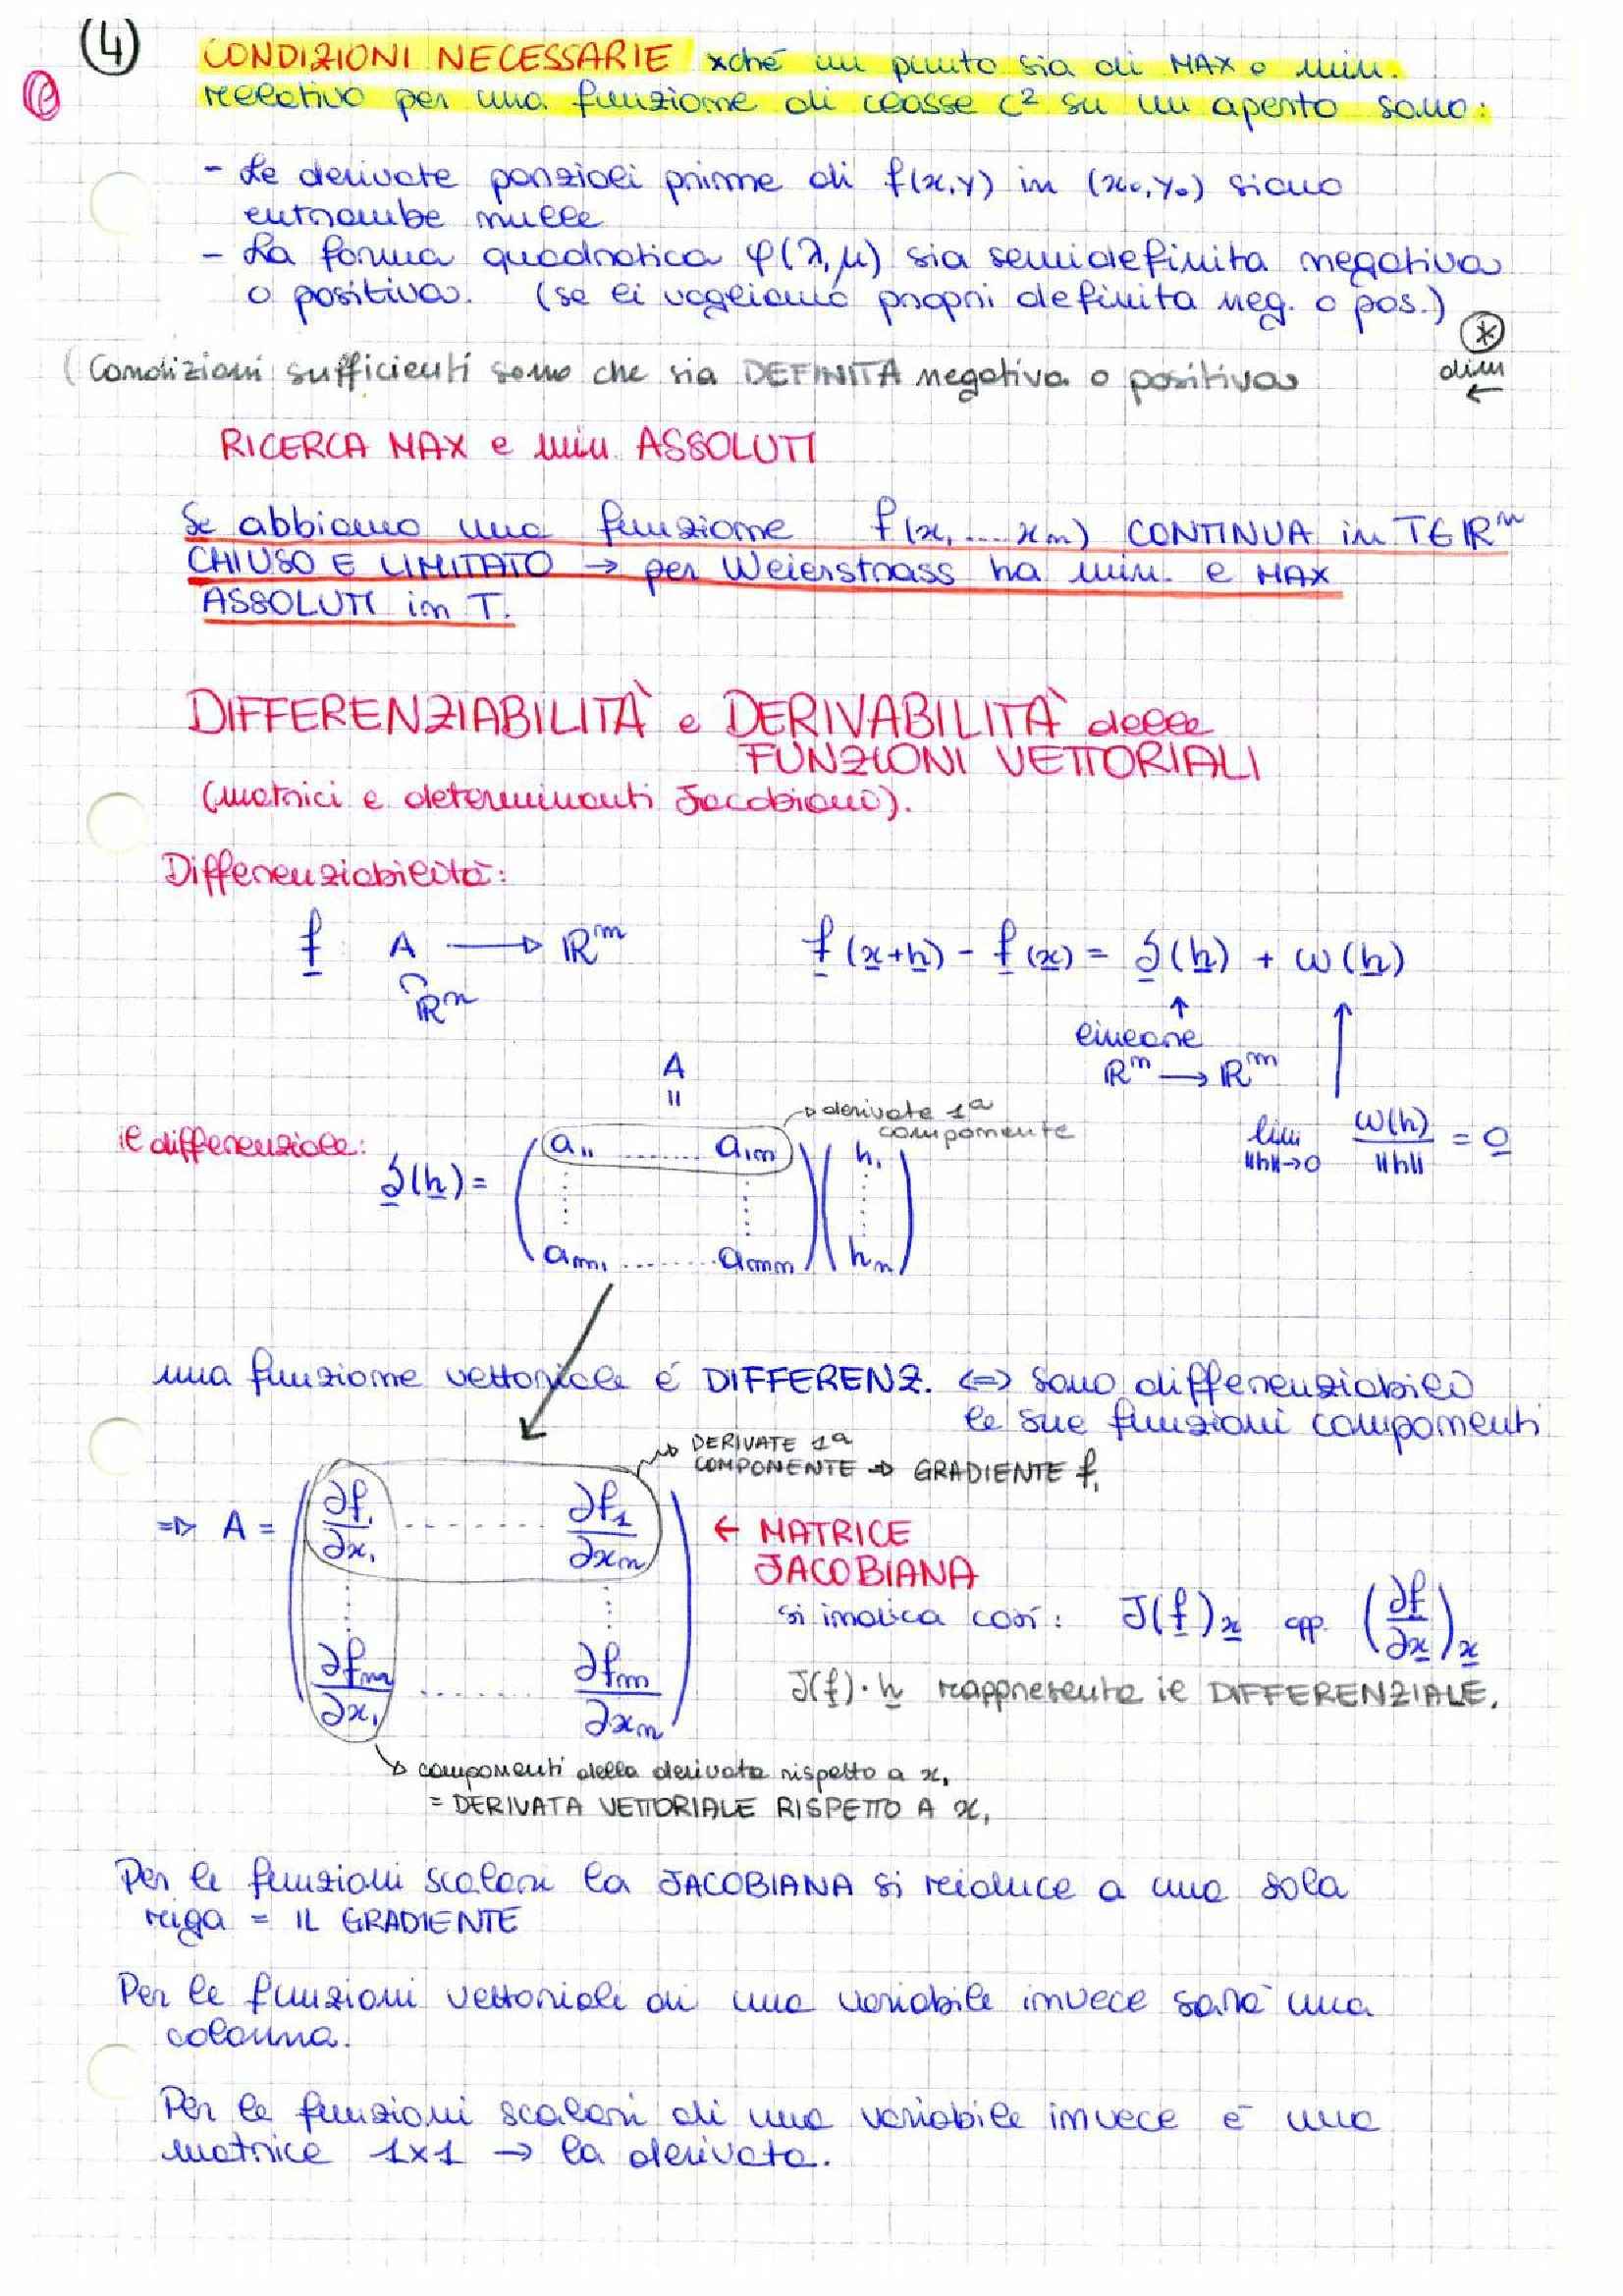 (4)
CONDIZIONI NECESSARIE xché un punto sia di MAX o min.
relativo per una funzione di classe C² su un aperto sono:
- Le derivate parziali prime di f(x,y) in (x₀,y₀) siano
entrambe nulle
- La forma quadratica φ(λ,μ) sia semidefinita negativa
o positiva. (se ci vogliamo propri definita neg. o pos.)
(Condizioni sufficienti sono che sia DEFINITA negativa o positiva
* dim ←
RICERCA MAX e min. ASSOLUTI
Se abbiamo una funzione f(x₁....xₙ) CONTINUA in T∈ℝⁿ
CHIUSO E LIMITATO → per Weierstrass ha min. e MAX
ASSOLUTI in T.
DIFFERENZIABILITÀ e DERIVABILITÀ delle
FUNZIONI VETTORIALI
(matrici e determinanti Jacobiani).
Differenziabilità:
f A → ℝᵐ f(x+h) - f(x) = δ(h) + ω(h)
∩
ℝⁿ ↑
lineare
ℝⁿ → ℝᵐ
A
=
→ derivate 1ª
componente
il differenziale:
δ(h) = (a₁₁ ........ a₁ₙ) (h₁)
aₘ₁ ........ aₘₙ hₙ
lim ‖h‖→0 ω(h)/‖h‖ = 0
una funzione vettoriale é DIFFERENZ. ⇔ sono differenziabili
le sue funzioni componenti
→ DERIVATE 1ª
COMPONENTE → GRADIENTE f₁
⇒ A = ∂f₁/∂x₁ ........ ∂f₁/∂xₙ
∂fₘ/∂x₁ ........ ∂fₘ/∂xₙ
← MATRICE
JACOBIANA
si indica così: J(f)ₓ opp. (∂f/∂x)ₓ
J(f)·h rappresenta il DIFFERENZIALE.
→ componenti della derivata rispetto a x₁
= DERIVATA VETTORIALE RISPETTO A x₁
Per le funzioni scalari la JACOBIANA si riduce a una sola
riga = IL GRADIENTE
Per le funzioni vettoriali di una variabile invece sarà una
colonna.
Per le funzioni scalari di una variabile invece é una
matrice 1x1 → la derivata.